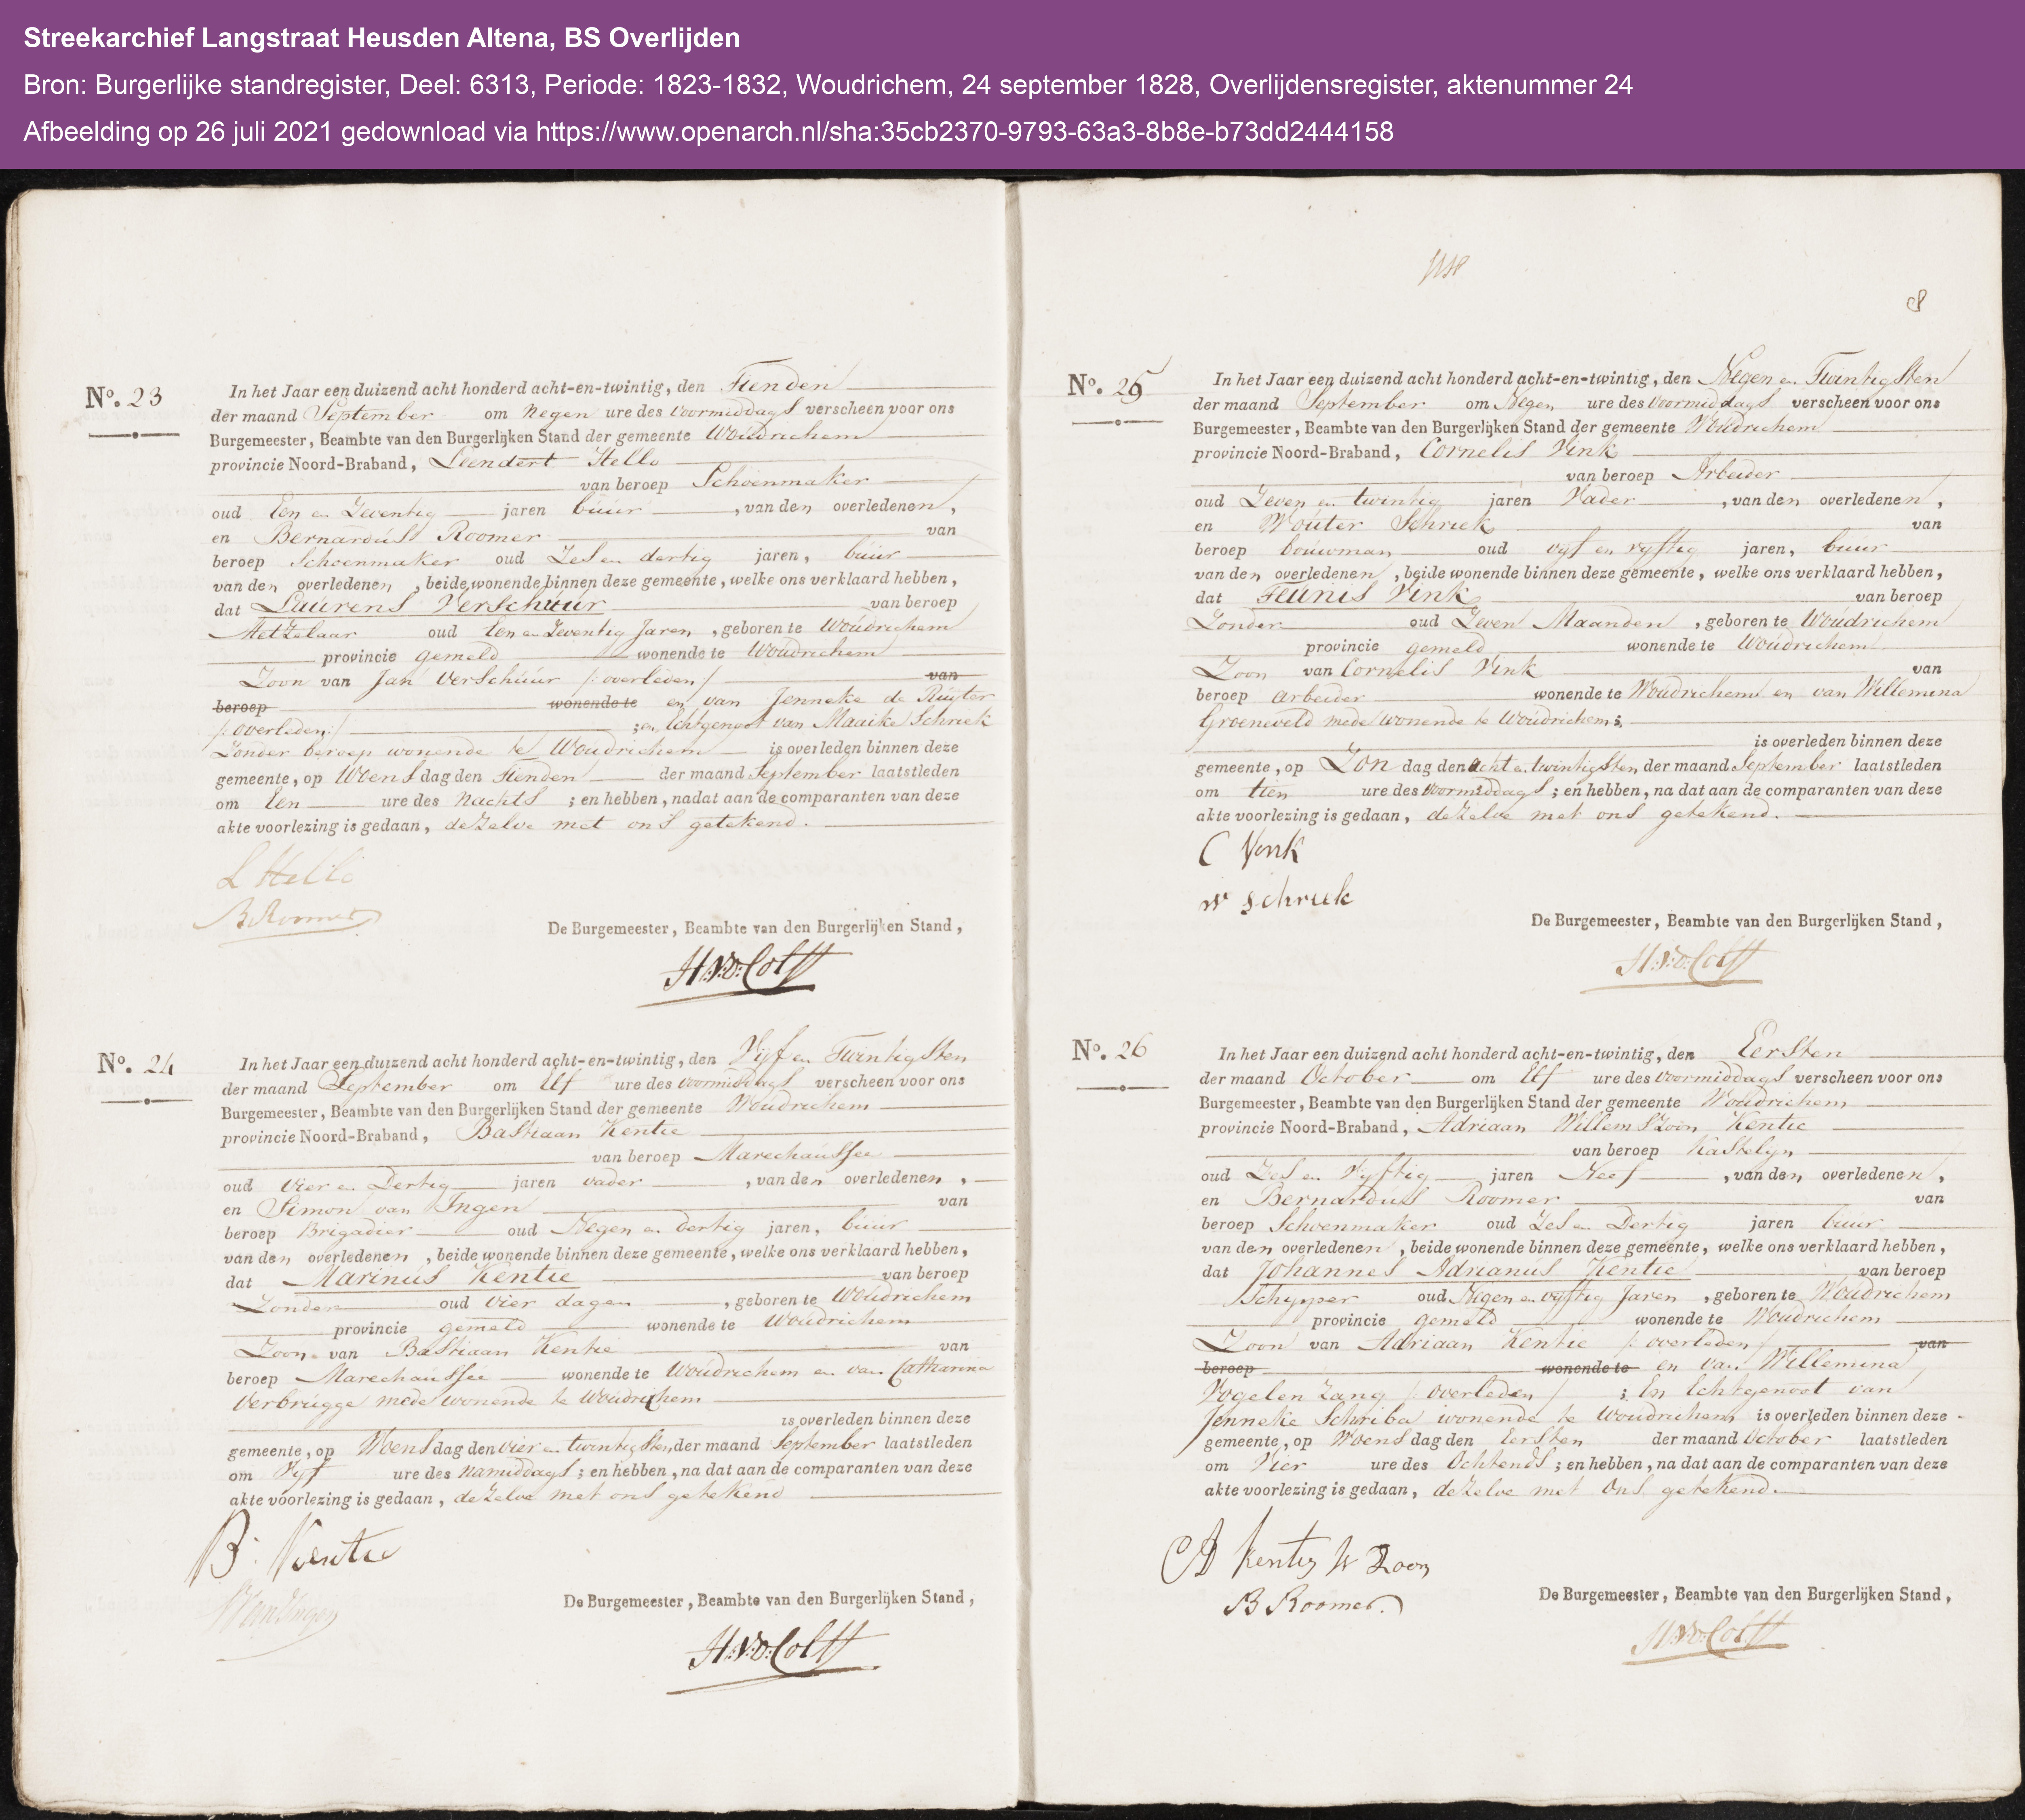 Streekarchief Langstraat Heusden Altena, BS Overlijden
Bron: Burgerlijke standregister, Deel: 6313, Periode: 1823-1832, Woudrichem, 24 september 1828, Overlijdensregister, aktenummer 24
Afbeelding op 26 juli 2021 gedownload via https://www.openarch.nl/sha:35cb2370-9793-63a3-8b8e-b73dd2444158
No. 23
In het Jaar een duizend acht honderd acht-en-twintig, den Tienden
der maand September om Negen ure des voormiddags verscheen voor ons
Burgemeester, Beambte van den Burgerlijken Stand der gemeente Woudrichem
provincie Noord-Braband, Leendert Hello
van beroep Schoenmaker
oud Een en Zeventig jaren buur, van den overledenen,
en Bernardus Roomer van
beroep Schoenmaker oud Zes en dertig jaren, buur
van den overledenen, beide wonende binnen deze gemeente, welke ons verklaard hebben,
dat Laurens Verschuur van beroep
Metzelaar oud Een en Zeventig Jaren, geboren te Woudrichem
provincie gemeld wonende te Woudrichem
Zoon van Jan Verschuur /: overleden / van
beroep wonende te en van Jenneke de Ruyter
/: overleden:/ ; en Echtgenoot van Maaike Schriek
Zonder beroep wonende te Woudrichem is overleden binnen deze
gemeente, op Woensdag den Tienden der maand September laatstleden
om Een ure des Nachts; en hebben, nadat aan de comparanten van deze
akte voorlezing is gedaan, dezelve met ons getekend.
L Hello
B Roomer
De Burgemeester, Beambte van den Burgerlijken Stand,
H:v:d:Colff
No. 24
In het Jaar een duizend acht honderd acht-en-twintig, den Vijf en Twintigsten
der maand September om Elf ure des voormiddags verscheen voor ons
Burgemeester, Beambte van den Burgerlijken Stand der gemeente Woudrichem
provincie Noord-Braband, Bastiaan Kentie
van beroep Marechaussee
oud vier en Dertig jaren vader, van den overledenen,
en Simon van Ingen van
beroep Brigadier oud Negen en dertig jaren, buur
van den overledenen, beide wonende binnen deze gemeente, welke ons verklaard hebben,
dat Marinus Kentie van beroep
Zonder oud vier dagen, geboren te Woudrichem
provincie gemeld wonende te Woudrichem
Zoon van Bastiaan Kentie van
beroep Marechaussee wonende te Woudrichem en van Catharina
Verbrugge mede wonende te Woudrichem
is overleden binnen deze
gemeente, op Woensdag den vier en twintigsten der maand September laatstleden
om Vyf ure des namiddags; en hebben, na dat aan de comparanten van deze
akte voorlezing is gedaan, dezelve met ons getekend
B. Kentie
S van Ingen
De Burgemeester, Beambte van den Burgerlijken Stand,
H:v:d:Colff
8
No. 25
In het Jaar een duizend acht honderd acht-en-twintig, den Negen en Twintigsten
der maand September om Negen ure des voormiddags verscheen voor ons
Burgemeester, Beambte van den Burgerlijken Stand der gemeente Woudrichem
provincie Noord-Braband, Cornelis Vink
van beroep Arbeider
oud Zeven en twintig jaren Vader, van den overledenen,
en Wouter Schriek van
beroep bouwman oud vyf en vyftig jaren, buur
van den overledenen, beide wonende binnen deze gemeente, welke ons verklaard hebben,
dat Teunis Vink van beroep
Zonder oud Zeven Maanden, geboren te Woudrichem
provincie gemeld wonende te Woudrichem
Zoon van Cornelis Vink van
beroep arbeider wonende te Woudrichem en van Willemina
Groeneveld mede wonende te Woudrichem;
is overleden binnen deze
gemeente, op Zondag den acht en twintigsten der maand September laatstleden
om tien ure des voormiddags; en hebben, na dat aan de comparanten van deze
akte voorlezing is gedaan, dezelve met ons getekend.
C Vink
W Schriek
De Burgemeester, Beambte van den Burgerlijken Stand,
H:v:d:Colff
No. 26
In het Jaar een duizend acht honderd acht-en-twintig, den Eersten
der maand October om Elf ure des voormiddags verscheen voor ons
Burgemeester, Beambte van den Burgerlijken Stand der gemeente Woudrichem
provincie Noord-Braband, Adriaan Willemszoon Kentie
van beroep Kastelyn
oud Zes en Vyftig jaren Neef, van den overledenen,
en Bernardus Roomer van
beroep Schoenmaker oud Zes en Dertig jaren buur
van den overledenen, beide wonende binnen deze gemeente, welke ons verklaard hebben,
dat Johannes Adrianus Kentie van beroep
Schypper oud Negen en vyftig Jaren, geboren te Woudrichem
provincie gemeld wonende te Woudrichem
Zoon van Adriaan Kentie /: overleden / van
beroep wonende te en van Willemina
Vogelenzang /: overleden / ; En Echtgenoot van
Jenneke Schriba wonende te Woudrichem is overleden binnen deze
gemeente, op Woensdag den Eersten der maand October laatstleden
om Vier ure des Ochtends; en hebben, na dat aan de comparanten van deze
akte voorlezing is gedaan, dezelve met Ons getekend.
A Kentie W Zoon
B Roomer.
De Burgemeester, Beambte van den Burgerlijken Stand,
H:v:d:Colff